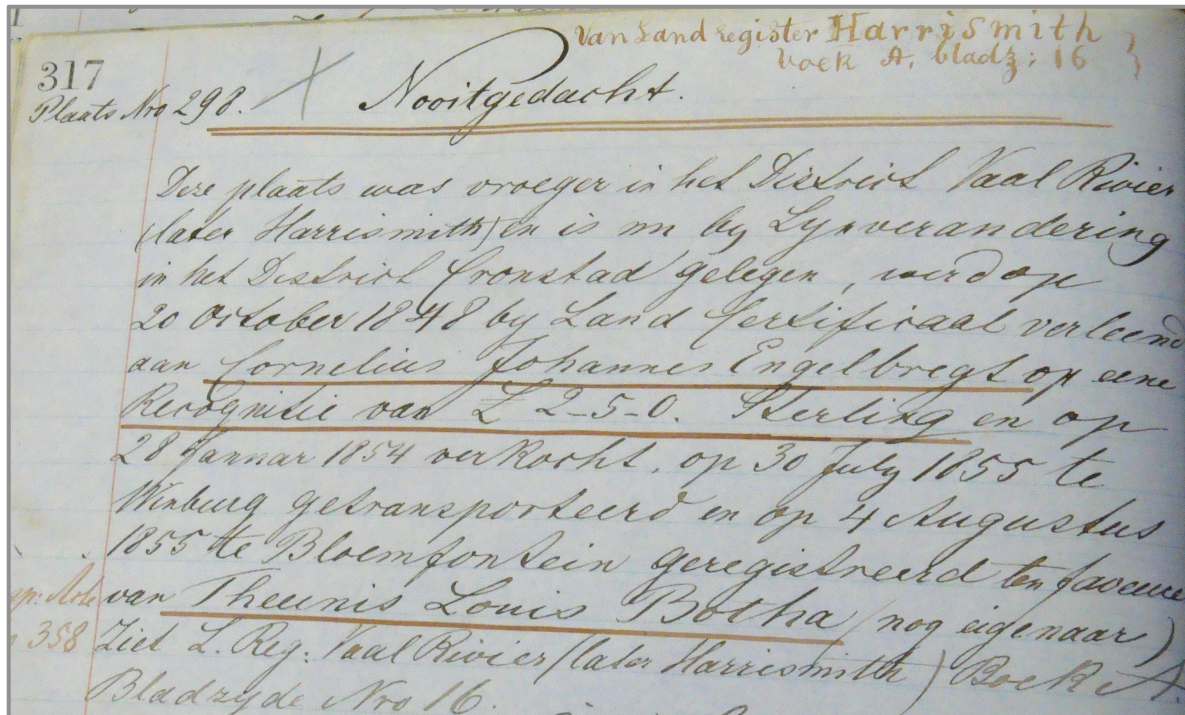 Van Landregister Harrismith
boek A, bladz: 16
317
Plaats Nro 298.
Nooitgedacht.
Deze plaats was vroeger in het District Vaal Rivier
(later Harrismith) en is nu by Lynverandering
in het District Cronstad gelegen, werd op
20 October 1848 by Land Certificaat verleend
aan Cornelius Johannes Engelbregt op eene
Recognitie van £ 2-5-0. Sterling en op
28 Januar 1854 verkocht, op 30 July 1855 te
Winburg getransporteerd en op 4 Augustus
1855 te Bloemfontein geregistreerd ten faveure
van Theunis Louis Botha (nog eigenaar)
358
Ziet L. Reg: Vaal Rivier (later Harrismith) Boek A.
Bladzyde Nro 16.